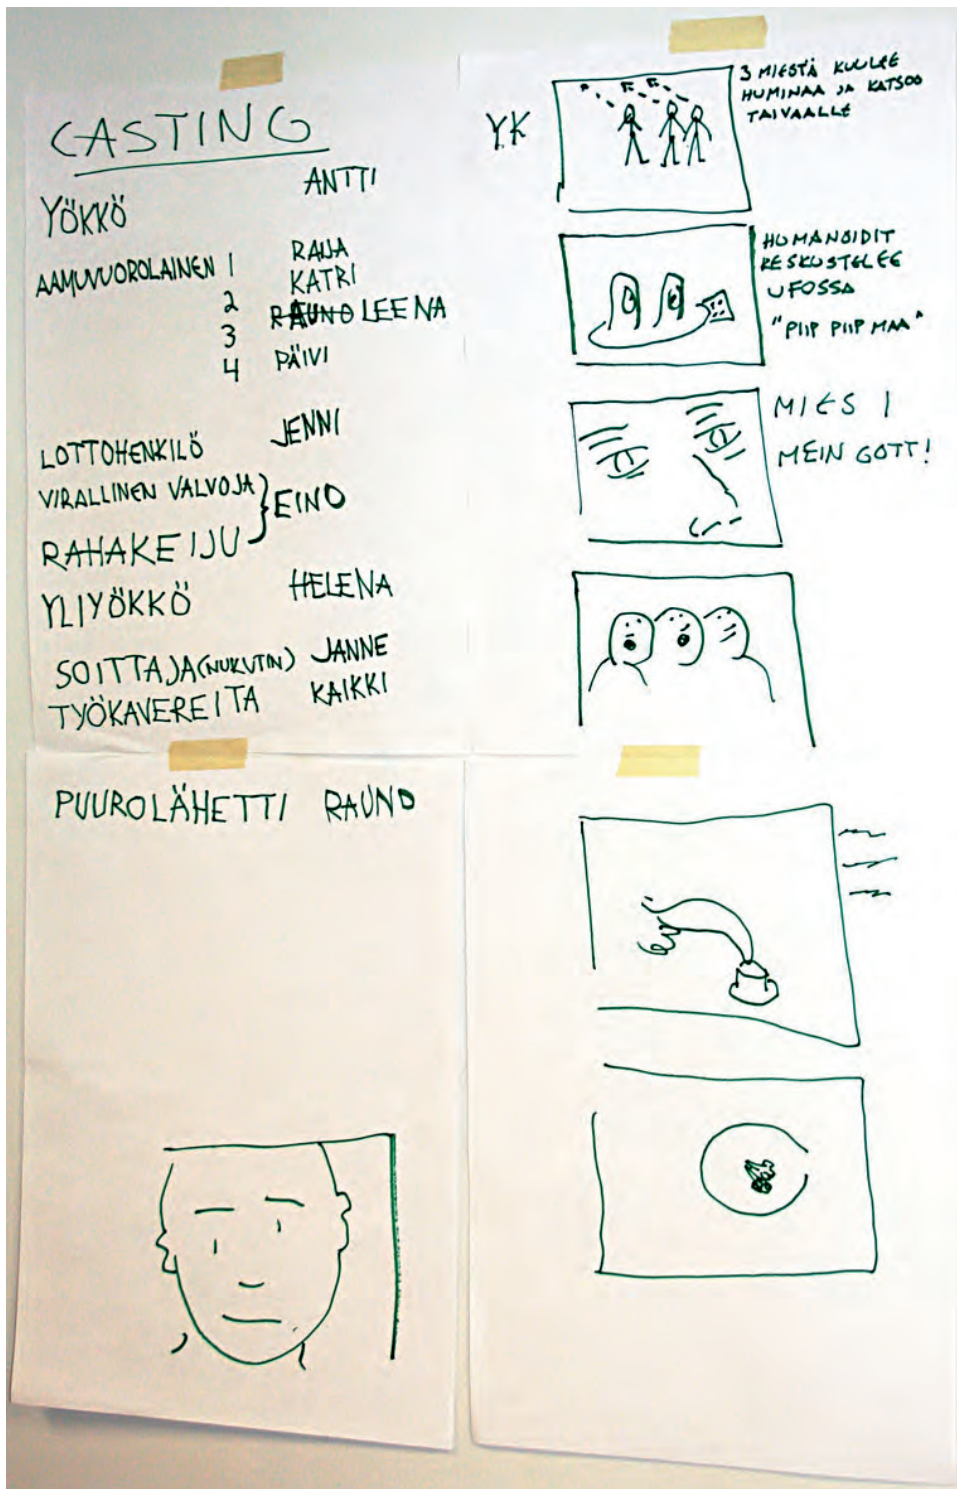 CASTING
YÖKKÖ ANTTI
AAMUVUOROLAINEN 1 RAIJA
2 KATRI
3 RAUNO LEENA
4 PÄIVI
LOTTOHENKILÖ JENNI
VIRALLINEN VALVOJA } EINO
RAHAKEIJU
YLIYÖKKÖ HELENA
SOITTAJA (NUKUTIN) JANNE
TYÖKAVEREITA KAIKKI
PUUROLÄHETTI RAUNO
YK
3 MIESTÄ KUULEE
HUMINAA JA KATSOO
TAIVAALLE
HUMANOIDIT
KESKUSTELEE
UFOSSA
"PIIP PIIP MAA"
MIES 1
MEIN GOTT!